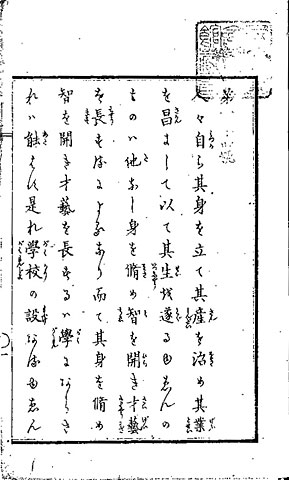 第
人々自ら其身を立て其産を治め其業
を昌にして以て其生を遂るゆゑんの
ものハ他なし身を脩め智を開き才藝
を長するによるなり而て其身を脩め
智を開き才藝を長するハ學にあらされ
れハ能はす是れ學校の設あるゆゑん